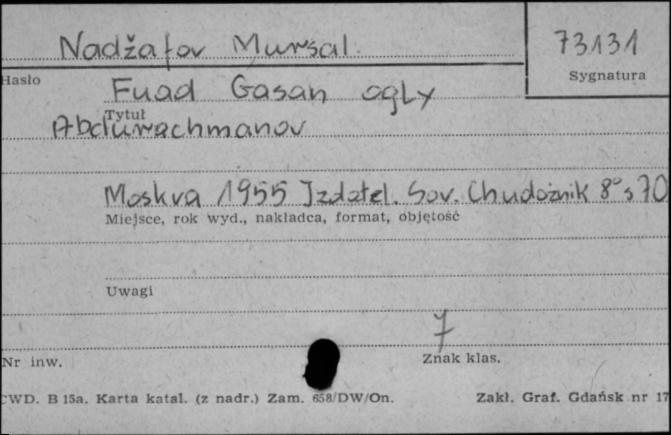 Nadžafov Muršal.
73131
Hasło
Sygnatura
Fuad Gasan ogly
Tytuł
Abdurachmanov
Moskva 1955 Izdatel. Sov. Chudožnik 8° s 70
Miejsce, rok wyd., nakładca, format, objętość
Uwagi
7
Nr inw.
Znak klas.
CWD. B 15a. Karta katal. (z nadr.) Zam. 658/DW/On.
Zakł. Graf. Gdańsk nr 17